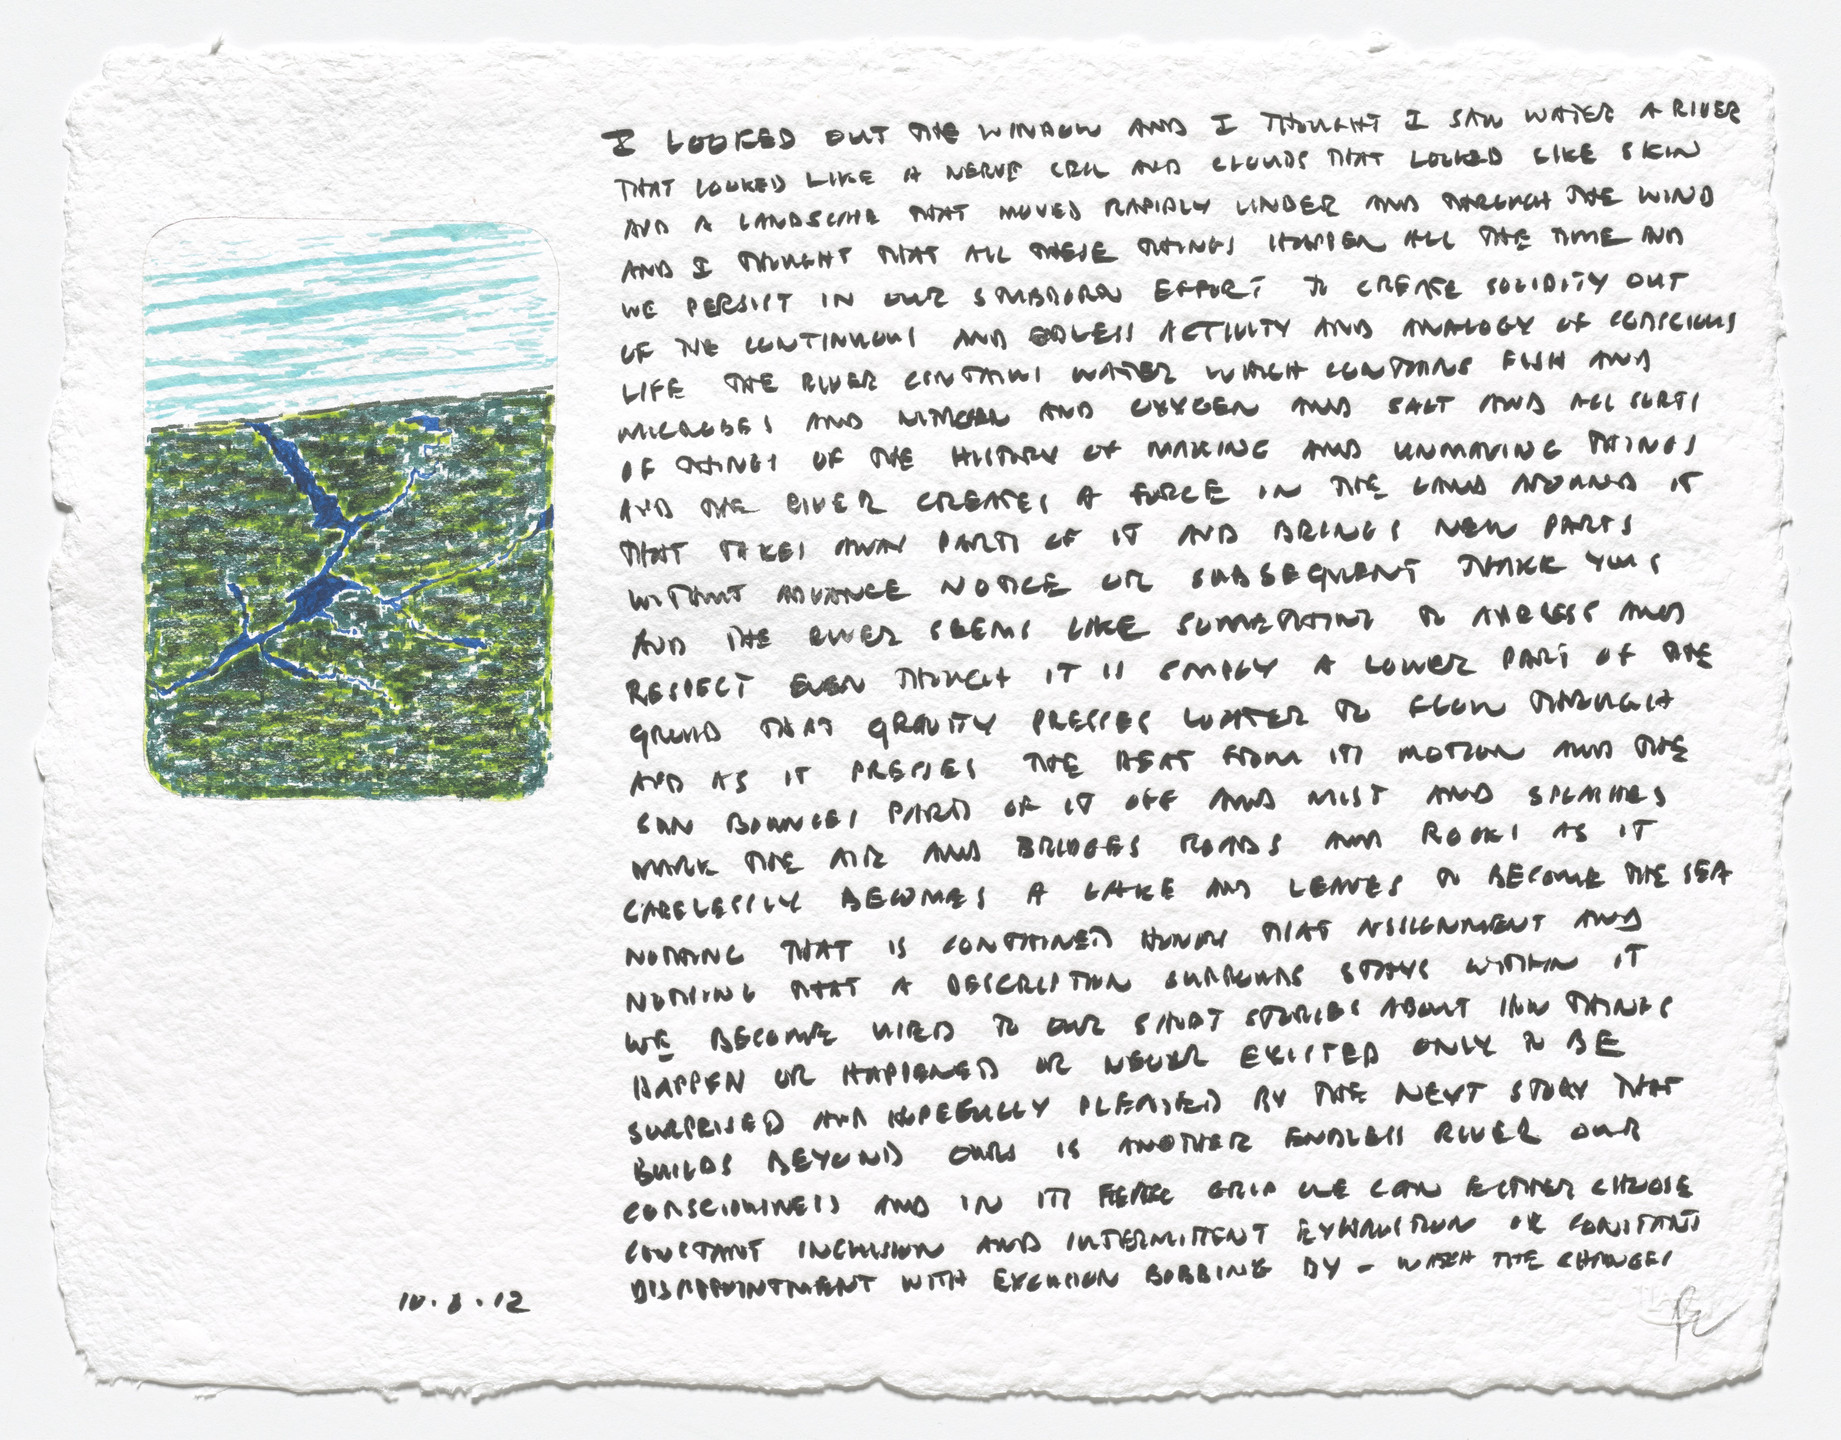 I LOOKED OUT THE WINDOW AND I THOUGHT I SAW WATER A RIVER
THAT LOOKED LIKE A NERVE CELL AND CLOUDS THAT LOOKED LIKE SKIN
AND A LANDSCAPE THAT MOVED RAPIDLY UNDER AND THROUGH THE WIND
AND I THOUGHT THAT ALL THESE THINGS HAPPEN ALL THE TIME AND
WE PERSIST IN OUR STUBBORN EFFORT TO CREATE SOLIDITY OUT
OF THE CONTINUOUS AND ENDLESS ACTIVITY AND ANALOGY OF CONSCIOUS
LIFE THE RIVER CONTAINS WATER WHICH CONTAINS FISH AND
MICROBES AND NITROGEN AND OXYGEN AND SALT AND ALL SORTS
OF THINGS OF THE HISTORY OF MAKING AND UNMAKING THINGS
AND THE RIVER CREATES A FORCE IN THE LAND AROUND IT
THAT TAKES AWAY PARTS OF IT AND BRINGS NEW PARTS
WITHOUT ADVANCE NOTICE OR SUBSEQUENT THANK YOUS
AND THE RIVER SEEMS LIKE SOMETHING TO ADDRESS AND
RESPECT EVEN THOUGH IT IS SIMPLY A LOWER PART OF THE
GROUND THAT GRAVITY PRESSES WATER TO FLOW THROUGH
AND AS IT PRESSES THE HEAT FROM ITS MOTION AND THE
SUN BOUNCES PARTS OF IT OFF AND MIST AND SPLASHES
MARK THE AIR AND BRIDGES ROADS AND ROCKS AS IT
CARELESSLY BECOMES A LAKE AND LEAVES TO BECOME THE SEA
NOTHING THAT IS CONTAINED HONORS THAT ASSIGNMENT AND
NOTHING THAT A DESCRIPTION SURROUNDS STAYS WITHIN IT
WE BECOME WIRED TO OUR SHORT STORIES ABOUT HOW THINGS
HAPPEN OR HAPPENED OR NEVER EXISTED ONLY TO BE
SURPRISED AND HOPEFULLY PLEASED BY THE NEXT STORY THAT
BUILDS BEYOND OURS IS ANOTHER ENDLESS RIVER OUR
CONSCIOUSNESS AND IN ITS GRIP WE CAN EITHER CHOOSE
CONSTANT INCLUSION AND INTERMITTENT EXHAUSTION OR CONSTANT
DISAPPOINTMENT WITH EXCLUSION BOBBING BY – WATCH THE CHANGES
10.8.12